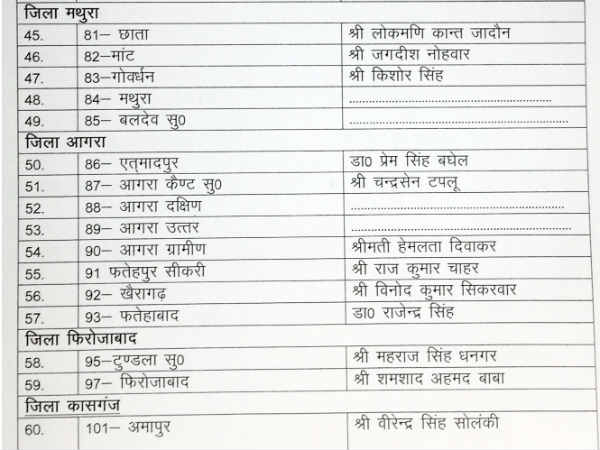 जिला मथुरा
45. 81– छाता श्री लोकमणि कान्त जादौन
46. 82–मांट श्री जगदीश नोहवार
47. 83–गोवर्धन श्री किशोर सिंह
48. 84– मथुरा ....................................................
49. 85– बलदेव सु0 ........................................................
जिला आगरा
50. 86– एत्मादपुर डा0 प्रेम सिंह बघेल
51. 87– आगरा कैण्ट सु0 श्री चन्द्रसेन टपलू
52. 88– आगरा दक्षिण ......................................................
53. 89– आगरा उत्तर ........................................................
54. 90– आगरा ग्रामीण श्रीमती हेमलता दिवाकर
55. 91 फतेहपुर सीकरी श्री राज कुमार चाहर
56. 92– खैरागढ़ श्री विनोद कुमार सिकरवार
57. 93– फतेहाबाद डा0 राजेन्द्र सिंह
जिला फिरोजाबाद
58. 95–टुण्डला सु0 श्री महराज सिंह धनगर
59. 97– फिरोजाबाद श्री शमशाद अहमद बाबा
जिला कासगंज
60. 101– अमापुर श्री वीरेन्द्र सिंह सोलंकी